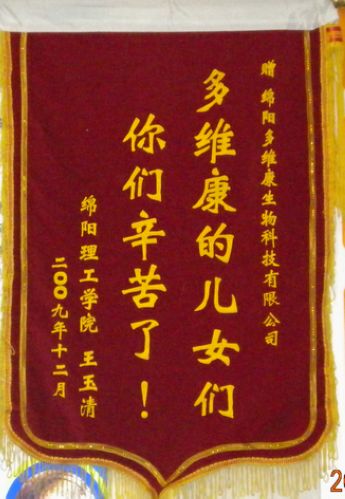 赠 绵阳多维康生物科技有限公司
多维康的儿女们
你们辛苦了！
绵阳理工学院 王玉清
二〇〇九年十二月